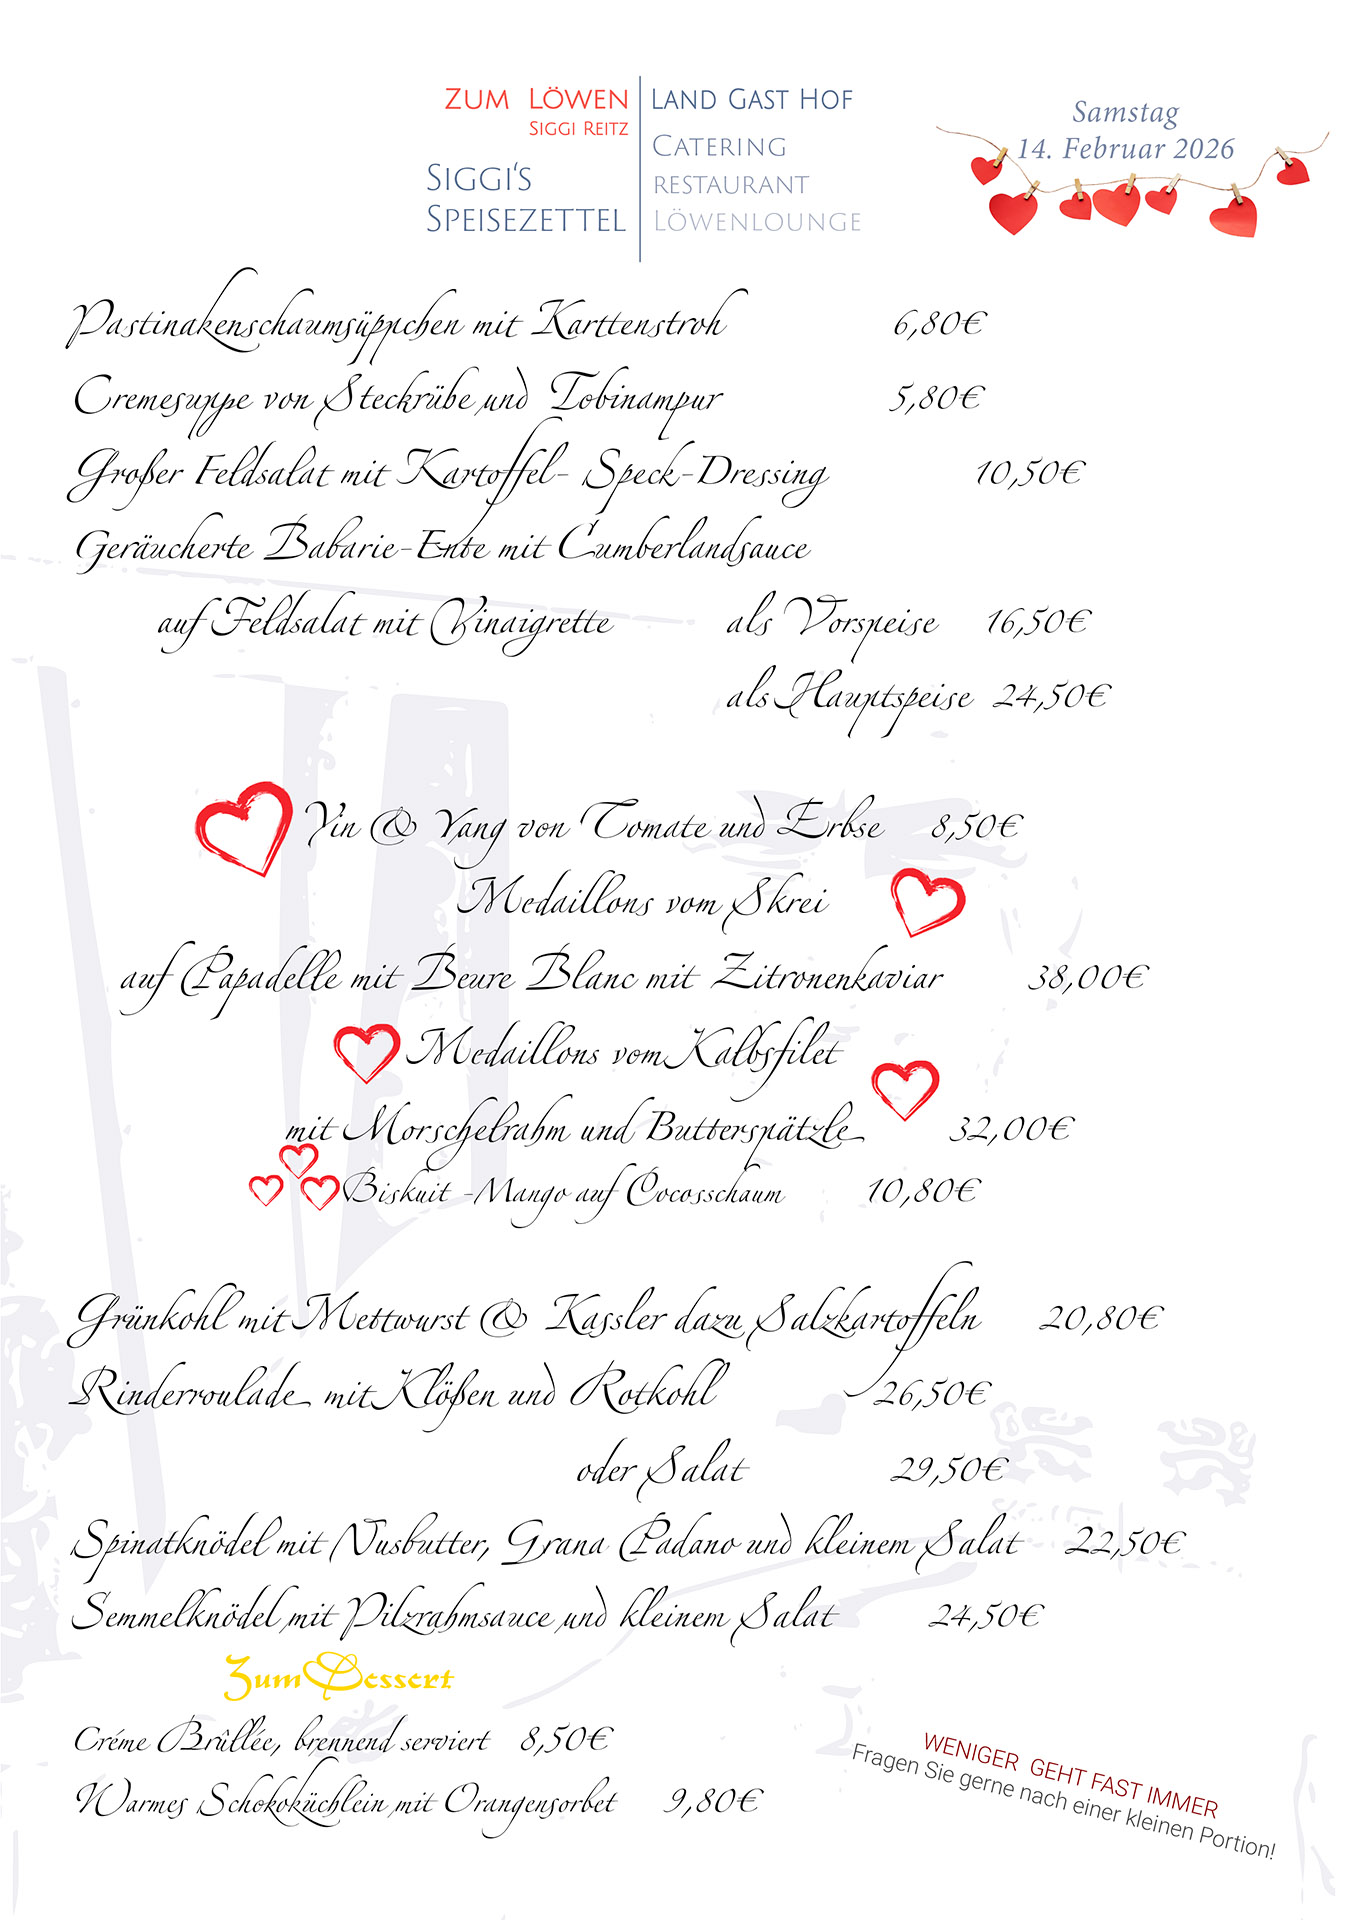 ZUM LÖWEN
SIGGI REITZ
SIGGI'S
SPEISEZETTEL
LAND GAST HOF
CATERING
RESTAURANT
LÖWENLOUNGE
Samstag
14. Februar 2026
Pastinakenschaumsüppchen mit Karttenstroh 6,80€
Cremesuppe von Steckrübe und Tobinampur 5,80€
Großer Feldsalat mit Kartoffel- Speck-Dressing 10,50€
Geräucherte Babarie-Ente mit Cumberlandsauce
auf Feldsalat mit Vinaigrette als Vorspeise 16,50€
als Hauptspeise 24,50€
Yin & Yang von Tomate und Erbse 8,50€
Medaillons vom Skrei
auf Papadelle mit Beure Blanc mit Zitronenkaviar 38,00€
Medaillons vom Kalbsfilet
mit Morschelrahm und Butterspätzle 32,00€
Biskuit -Mango auf Cocosschaum 10,80€
Grünkohl mit Mettwurst & Kassler dazu Salzkartoffeln 20,80€
Rinderroulade mit Klößen und Rotkohl 26,50€
oder Salat 29,50€
Spinatknödel mit Nusbutter, Grana Padano und kleinem Salat 22,50€
Semmelknödel mit Pilzrahmsauce und kleinem Salat 24,50€
Zum Dessert
Créme Brûllée, brennend serviert 8,50€
Warmes Schokoküchlein mit Orangensorbet 9,80€
WENIGER GEHT FAST IMMER
Fragen Sie gerne nach einer kleinen Portion!